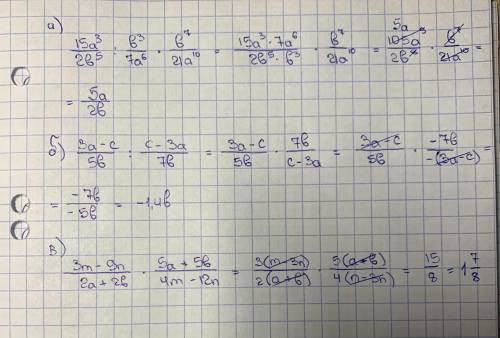 а) 15a³/2b⁵ : b³/7a⁶ · b⁷/21a¹⁰ = 15a³·7a⁶/2b⁵·b³ · b⁷/21a¹⁰ = 5a 105a⁹/2b⁸ · b⁷/21a¹⁰ =
= 5a/2b
б) 3a-c/5b : c-3a/7b = 3a-c/5b · 7b/c-3a = 3a-c/5b · -7b/-(3a-c) =
= -7b/-5b = -1,4b
в)
3m-9n/2a+2b · 5a+5b/4m-12n = 3(m-3n)/2(a+b) · 5(a+b)/4(m-3n) = 15/8 = 1 7/8